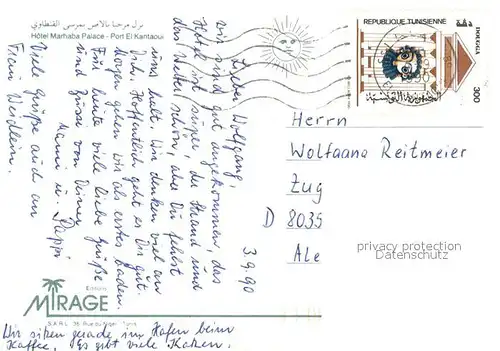 نزل مرحبا بالاص بمرسى القنطاوي
Hôtel Marhaba Palace - Port El Kantaoui
3.9.90
Lieber Wolfgang,
wir sind gut angekommen, das
Hotel ist super, der Strand und
das Wetter schön, aber Du fehlst
uns halt. Wir denken viel an
Dich. Hoffentlich geht es Dir gut.
Morgen gehen wir als erstes baden.
Für heute viele liebe Grüße
und Küsse von Deiner
Mami u. Pappi
Viele Grüße auch an
Frau
Wir sitzen gerade im Hafen beim
Kaffee. Es gibt viele Katzen.
Editions
MIRAGE
S.A.R.L.
REPUBLIQUE TUNISIENNE
300
الجمهورية التونسية
Herrn
Wolfgang Reitmeier
Zug
D 8035
privacy protection